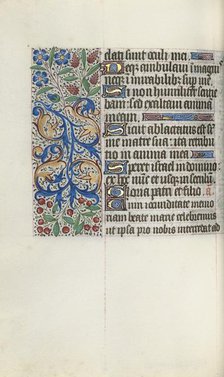 lati sunt oculi mei
Neqz ambulavi in magnis
neqz in mirabilibz super me
Si non humiliter sentie
bam sed exaltavi animā
meam
Sicut ablactatus est super
matre sua ita retribu
in anima mea
Speret israel in domino
ex hoc nūc et usqz in seculū
Gloria patri et filio
Cum iocunditate memor
iam beate marie celebremus
ut ipsa pro nobis intercedat ad